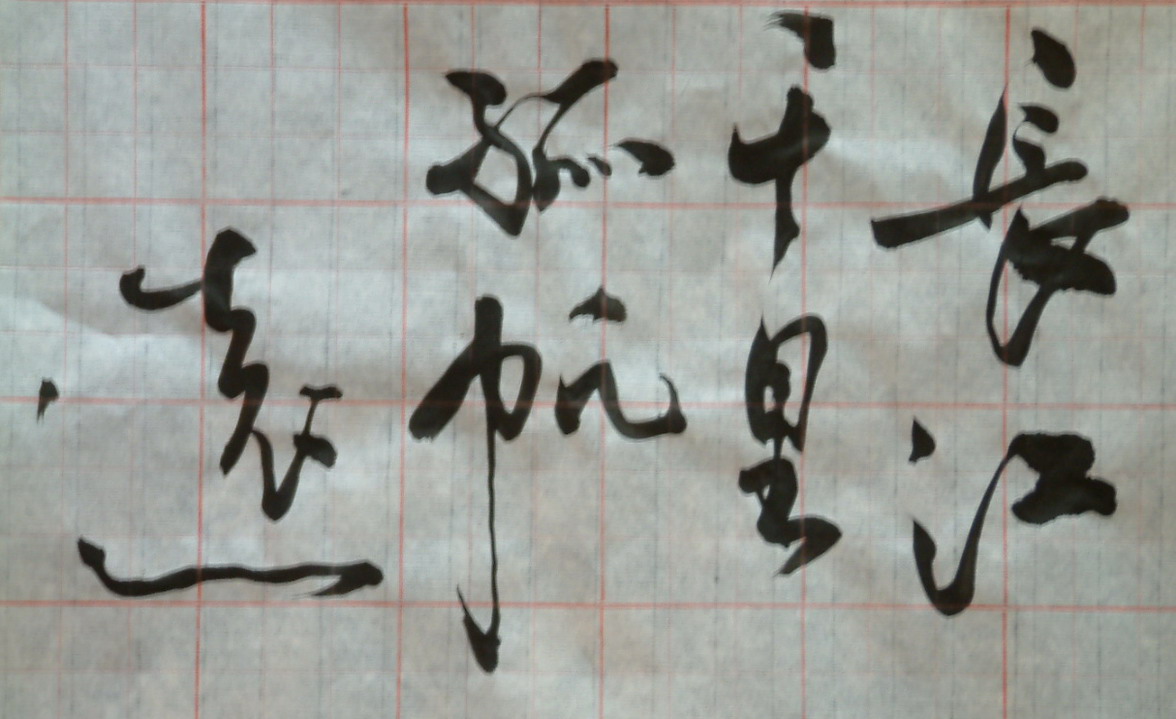 長江
千里
孤帆
遠